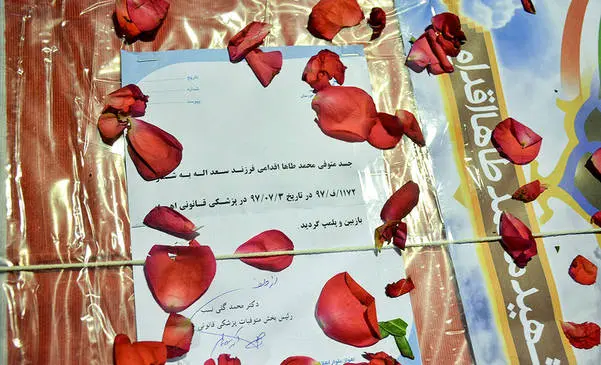 تاریخ
شماره
پیوست
جسد متوفی محمد طاها اقدامی فرزند سعد اله به
۱۱۷۲/ف/۹۷ در تاریخ ۹۷/۰۷/۳ در پزشکی قانونی
بازبین و پلمپ گردید
دکتر محمد گلی نسب
رئیس بخش متوفیات پزشکی قانونی
شهید محمد طاها اقدامی